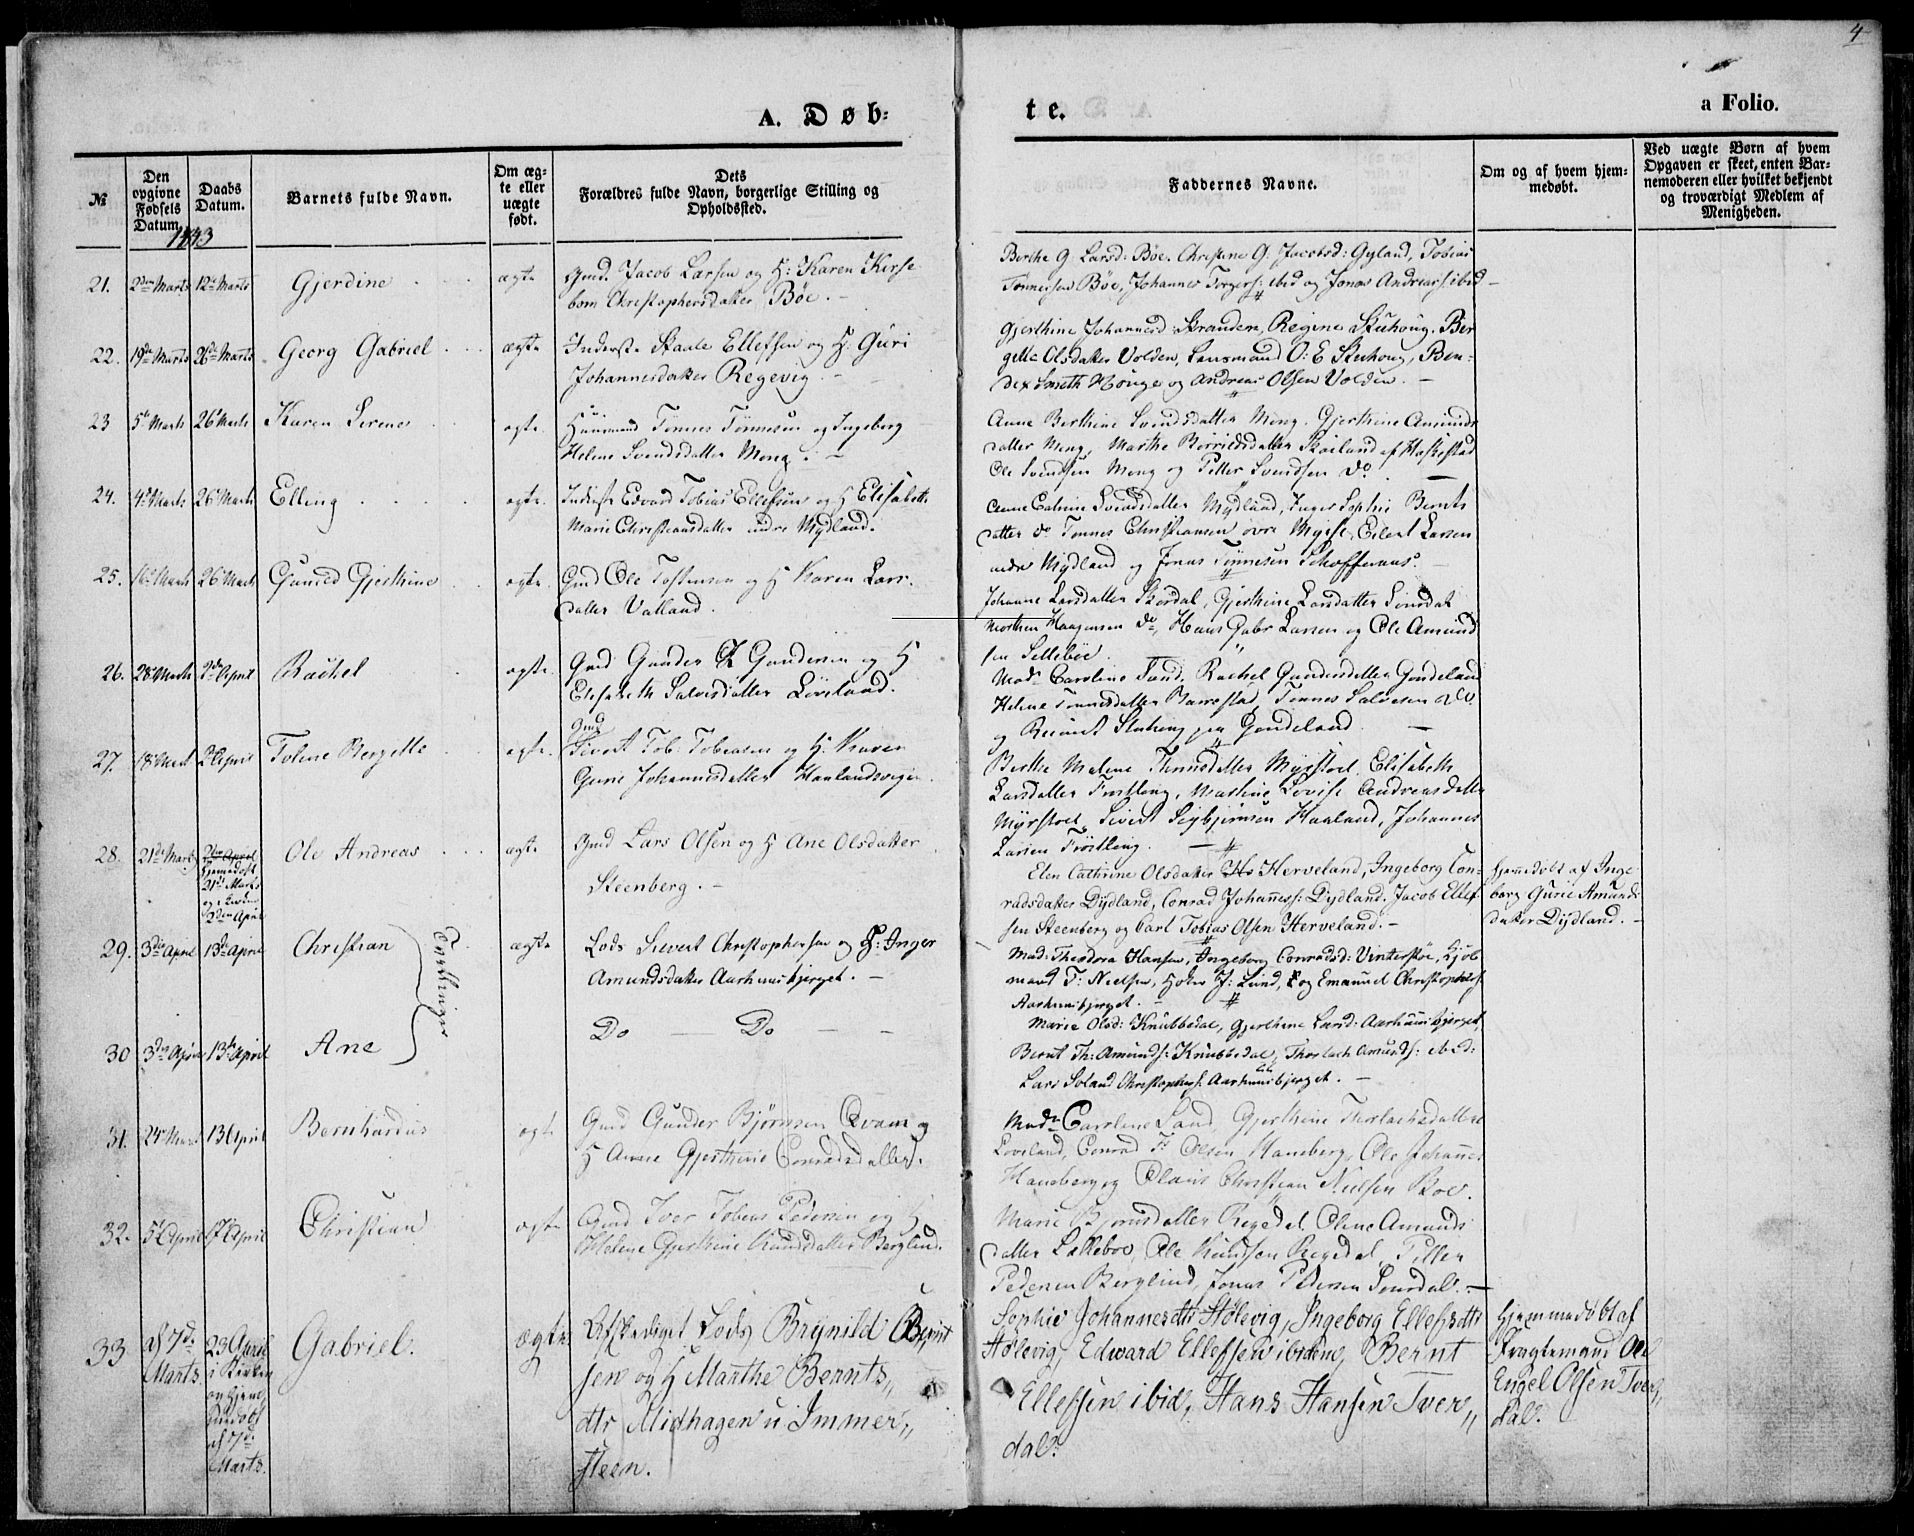 4
A. Døb-
te.
a Folio.
№
Den opgivne Fødsels Datum.
Daabs Datum.
Barnets fulde Navn.
Om ægte eller uægte født.
Dets Forældres fulde Navn, borgerlige Stilling og Opholdssted.
Faddernes Navne.
Om og af hvem hjemmedøbt.
Ved uægte Børn af hvem Opgaven er skeet, enten Barnemoderen eller hvilket bekjendt og troværdigt Medlem af Menigheden.
1843
21. 2den Marts 12te Marts Gjerdine ægte Gmd. Jacob Larsen og H: Karen Kirse
bom Christophersdatter Bøe.
Berthe G. Larsd: Bøe. Christine G. Jacobsd: Gyland, Tobias
Tønnesen Bøe, Johannes Torgers: ibid og Jonas Andreas: ibid
22. 19de Marts 26de Marts Georg Gabriel ægte Inderste Staale Ellefsen og H: Guri
Johannesdatter Regevig.
Gjerthine Johannesd: Stranden, Regine Stuhoug. Ber
gitte Olsdatter Volden, Lensmand O: E Stuhoug, Ben-
dix Smith Houge og Andreas Olsen Volden.
23 5te Marts 26 Marts Karen Serene ægte. Huusmand Tønnes Tønnesen og Ingeborg
Helene Svendsdatter Mong.
Anne Berthine Svendsdatter Mong. Gjerthine Amunds
datter Mong, Marthe
Ole Svendsen Mong og Petter Svendsen do
24. 4de Marts 26 Marts Elling ægte. Inderst Edvard Tobias Ellefsen og H Elisabeth
Marie Christiansdatter indre Mydland.
Anne Catrine Svendsdatter Mydland, Inger Sophie Bernts
datter do Tønnes Christiansen Eilert Larsen
indre Mydland og Jonas Tønnesen
25. 16de Marts 26 Marts Gunild Gjerthine ægte. Gmd Ole Tostensen og H Karen Lars-
datter Valland.
Johanne Larsdatter Skordal, Gjerthine Larsdatter
Morthen Haagensen do, Hans Gabr Larsen og Ole Amund
sen Sellebøe.
26. 28 Marts 2de April Rachel ægte. Gmd Gunder Gundersen og H
Elisabeth Salvesdatter Løvland.
Mad. Caroline Sand. Rachel Gundersdatter Gondeland
Helene Tønnesdatter Barrestad, Tønnes Salvesen do
og Reinert Gondeland
27. 18 Marts 2 April Tolene Bergitte ægte. Gmd
Sivert Tob: Tobiasen og H: Karen
Gurie Johannesdatter Haalandsvigen
Berthe Malene Tønnesdatter Myrstoel, Elisabeth
Larsdatter Frøstling, Marthine Lovise Andreasdatter
Myrstoel, Sivert Sigbjørnsen Haaland, Johannes
Larsen Frøstling.
28. 21de Marts 2den April
hjemmedøbt
21de Marts
2den April Ole Andreas ægte Gmd Lars Olsen og H Ane Olsdatter
Steenberg.
Elen Cathrine Olsdatter Herveland, Ingeborg Con-
radsdatter Dydland, Conrad Johannes: Dydland. Jacob Ellef-
sen Steenberg og Carl Tobias Olsen Herveland.
hjemedøbt af Inge
borg Gurie Amunds
datter Dydland.
29. 3die April 13de April Christian Tvillinger ægte Lods Sievert Christophersen og H: Inger
Amundsdatter Aarhuusbjerget.
Mad: Theodora Hansen, Ingeborg Conradsd: Vinterstøe, Kjøb
mand T: Nielsen, Holm J: Lund, og Emanuel Christophers:
Aarhuusbjerget.
30 3die April 13de April Ane Do Do
Marie Olsd: Knubbedal, Gjerthine Larsd: Aarhuusbjerget,
Bernt Th: Amunds: Knubbedal, Thorlach Amunds: ibid:
Lars Soland Christophers: Aarhuusbjerget.
31. 24 Marts 13 April Bernhardus ægte Gmd Gunder Bjørnsen Qvam og
H Anne Gjerthine Conradsdatter.
Mad: Caroline Sand, Gjerthine Thorlachsdatter
Loveland, Conrad T. Olsen Haneberg, Ole Johannes
Haneberg og Olaus Christian Nielsen Boe.
32. 5te April 17de April Christian ægte Gmd Iver Tobias Pedersen og H
Helene Gjerthine Knudsdatter Berglind.
Marie Bjørnsdatter Regedal, Oline Amunds
datter Ole Knudsen Regedal, Petter
Pedersen Berglind, Jonas Pedersen
33 d. 7de
Marts. 23 April
i Kirken
og hjem
medøbt
d. 7de
Marts. Gabriel. ægte Afskediget Lods Brynild Bernt
sen og H Marthe Bernts,,
dtr Midhagen u Immer,,
steen.
Sophie Johannesdtr Stølevig, Ingeborg Ellefsdtr
Stølevig, Edward Ellefsen ibidem, Bernt
Ellefsen ibid, Hans Hansen Tver,,
dal.
Hjemmedøbt af
Fragtemand Ole
Engel Olsen Tver,,
dal.